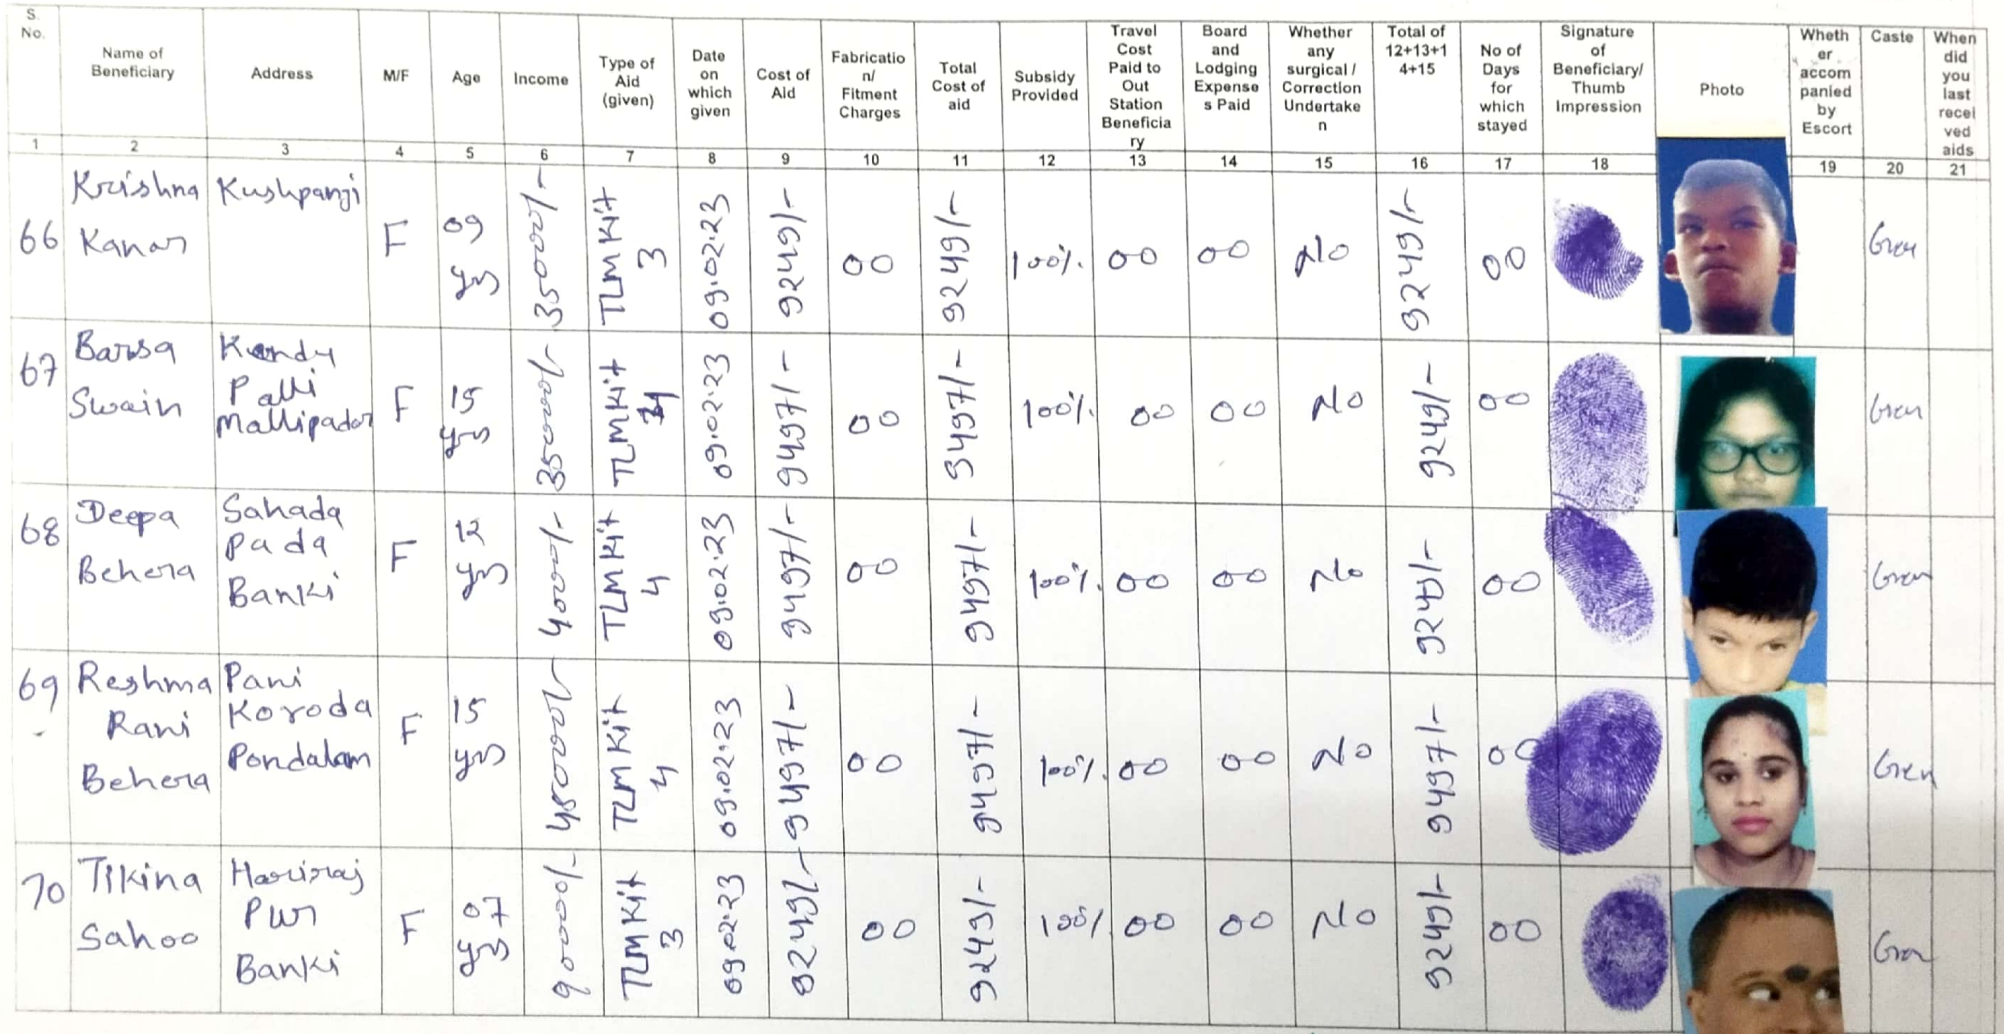 S. No.
Name of Beneficiary
Address
M/F
Age
Income
Type of Aid (given)
Date on which given
Cost of Aid
Fabricatio n/ Fitment Charges
Total Cost of aid
Subsidy Provided
Travel Cost Paid to Out Station Beneficia ry
Board and Lodging Expense s Paid
Whether any surgical / Correction Undertake n
Total of 12+13+1 4+15
No of Days for which stayed
Signature of Beneficiary/ Thumb Impression
Photo
Wheth er accom panied by Escort
Caste
When did you last recei ved aids
1 2 3 4 5 6 7 8 9 10 11 12 13 14 15 16 17 18 19 20 21
66 Krishna Kanar Kushpanji F 09 yrs 35000/- TLM Kit 3 09.02.23 9249/- 00 9249/- 100%. 00 00 No 9249/- 00 Gren
67 Barsa Swain Kandu Palli Mallipador F 15 yrs TLM Kit 09.02.23 9497/- 00 9497/- 100%. 00 00 No 9249/- 00 Gren
68 Deepa Behera Sahada Pada Banki F 12 yrs TLM Kit 4 09.02.23 9497/- 00 9497/- 100%. 00 00 No 00 Gren
69 Reshma Rani Behera Pani Koroda Pondalam F 15 yrs TLM Kit 4 09.02.23 9497/- 00 9497/- 100%. 00 00 No 9497/- 00 Gren
70 Tikina Sahoo Hariraj Pur Banki F 07 yrs TLM Kit 3 09.02.23 9249/- 00 9249/- 100% 00 00 No 9249/- 00 Gren